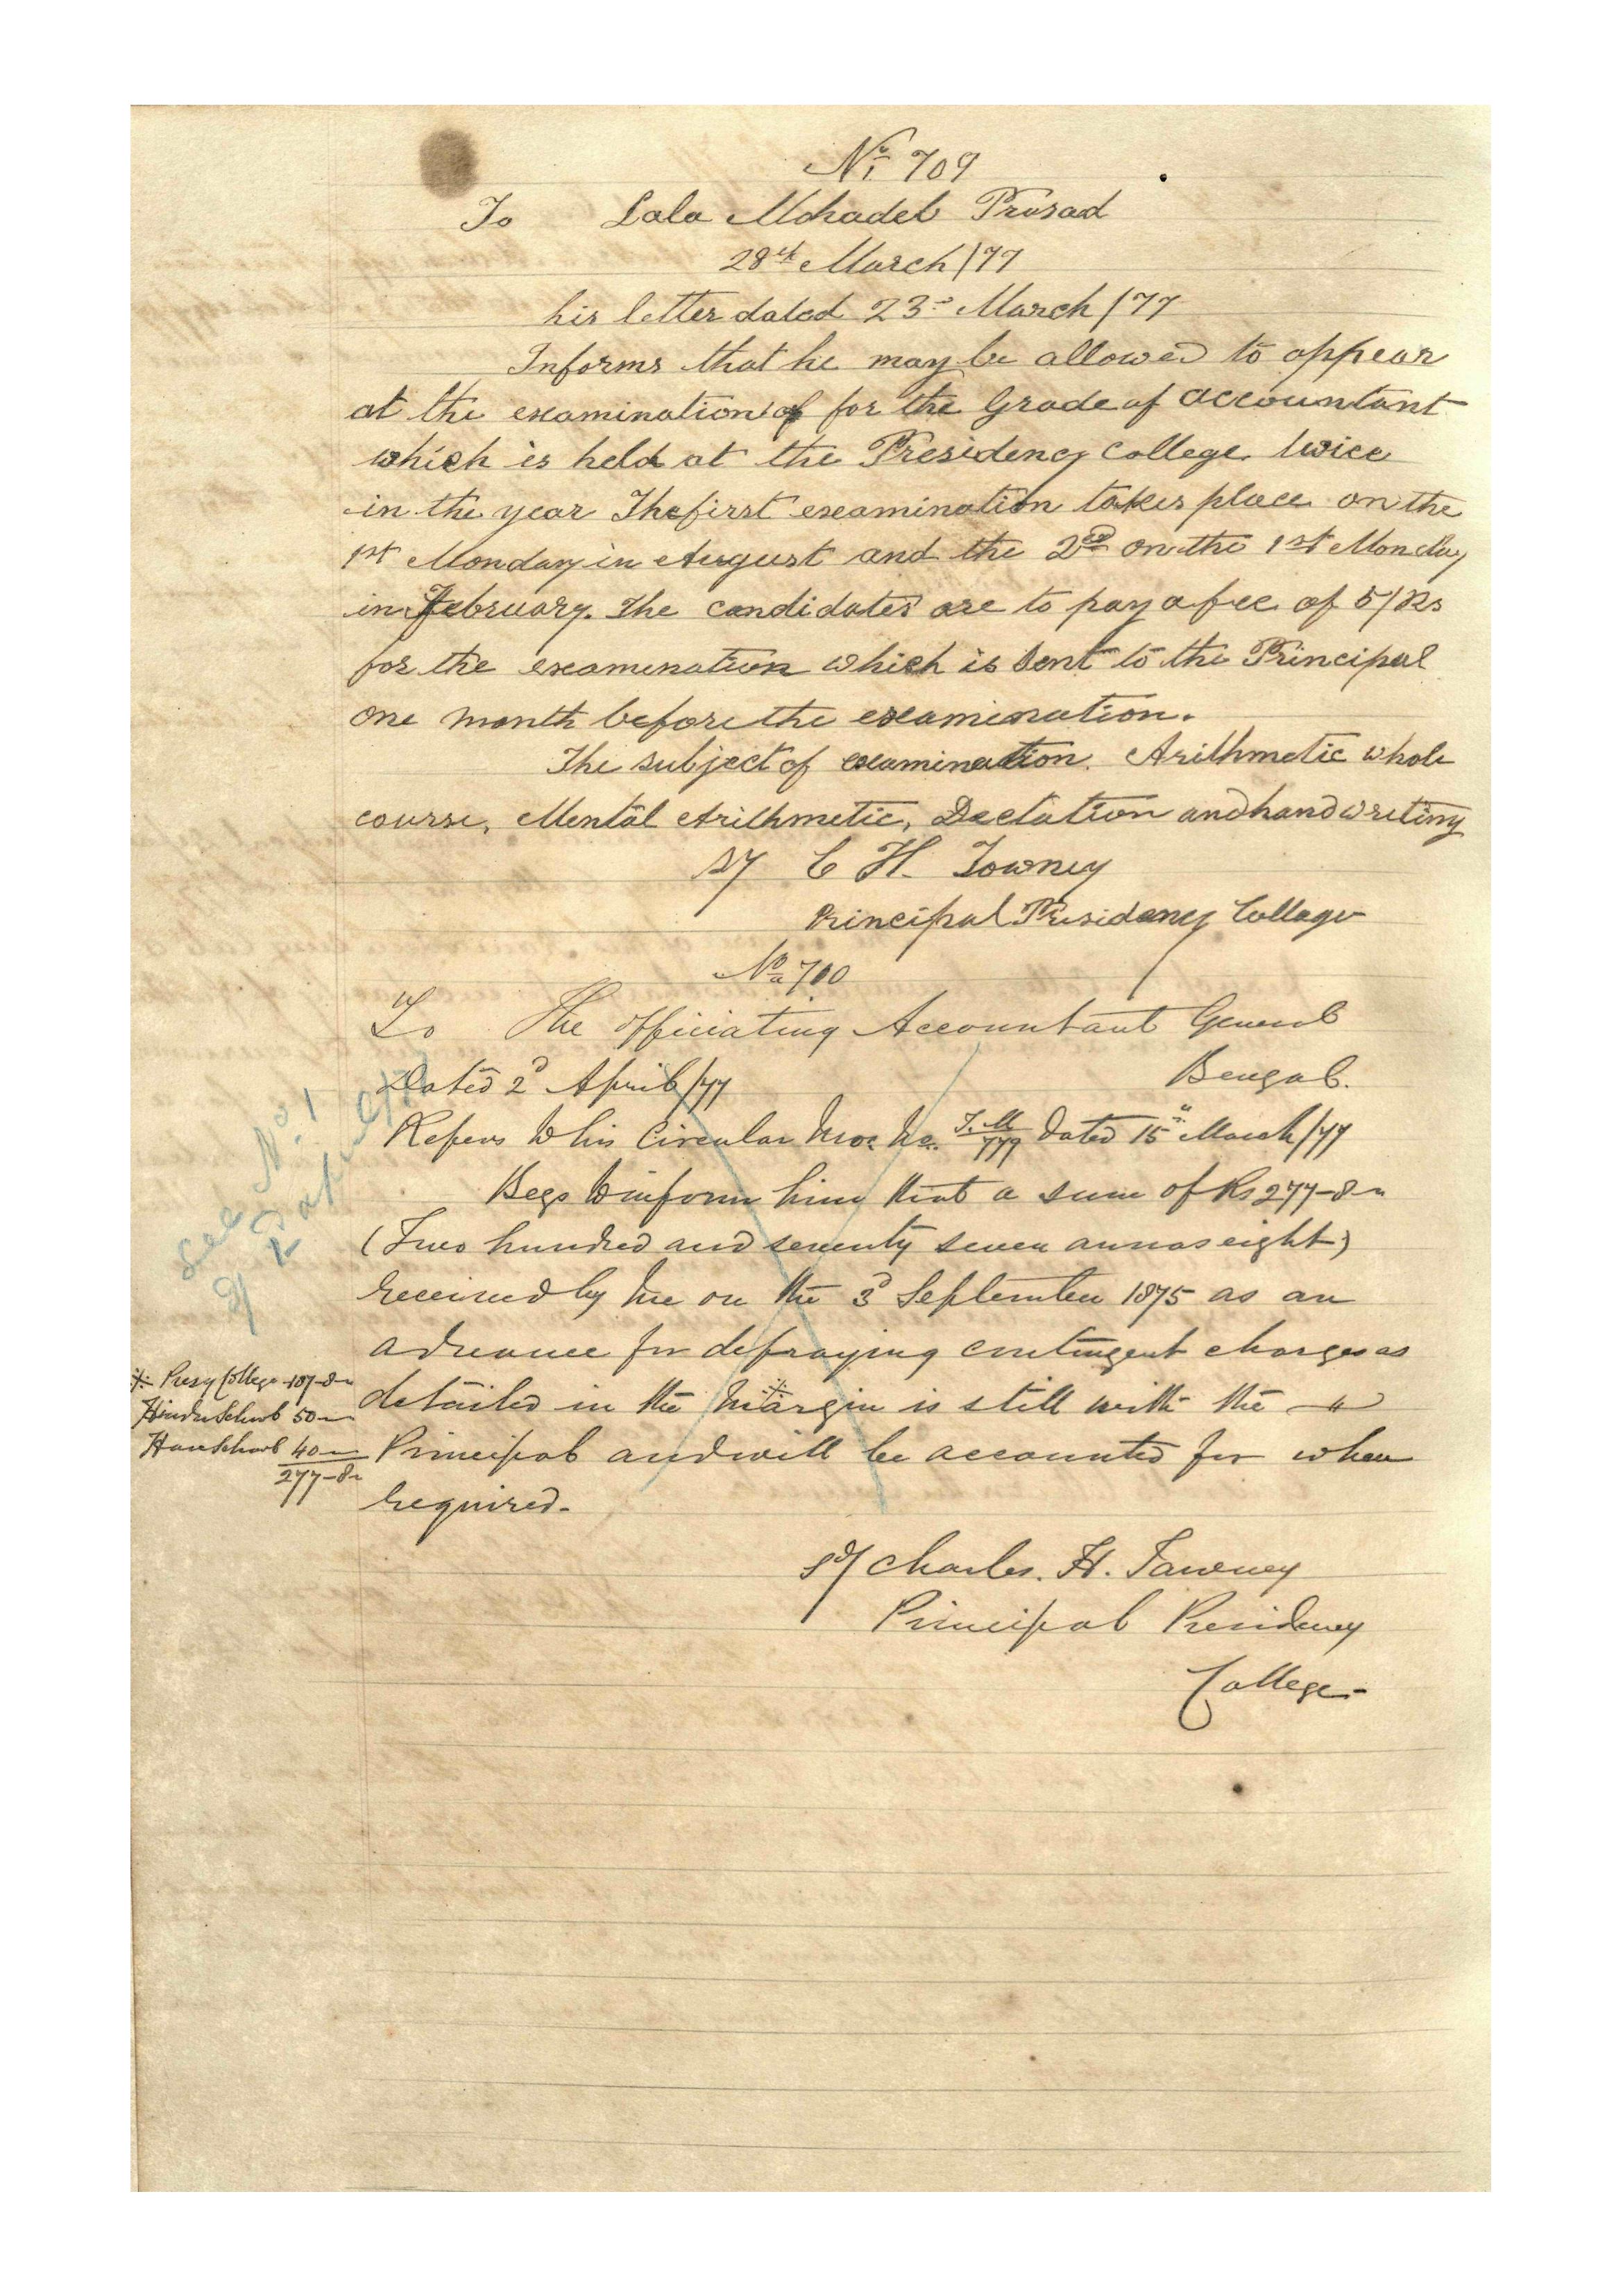 No. 709
To Lala Mohadeb Prosad
28th March/77
his letter dated 23rd March/77
Informs that he may be allowed to appear
at the examination of for the Grade of accountant
which is held at the Presidency College twice
in the year The first examination takes place on the
1st Monday in August and the 2nd on the 1st Monday
in February. The candidates are to pay a fee of 5/Rs
for the examination which is sent to the Principal
one month before the examination.
The subject of examination. Arithmetic whole
course, Mental Arithmetic, Dectation and handwriting
Sd/ C H. Towney
Principal Presidency College
No 710
To The Officiating Accountant General
Bengal.
Dated 2d April/77
Refers to his Circular No. T.M/779 dated 15th March/77
Begs to inform him that a sum of Rs 277-8-
(Two hundred and seventy seven annas eight)
received by me on the 3d September 1875 as an
advance for defraying contingent charges as
detailed in the margin is still with the
Principal and will be accounted for when
required.
Presy College 187-8-
Hindu School 50-
Hare School 40-
277-8-
See No. 1
of
Sd/ Charles. H. Tawney
Principal Presidency
College-